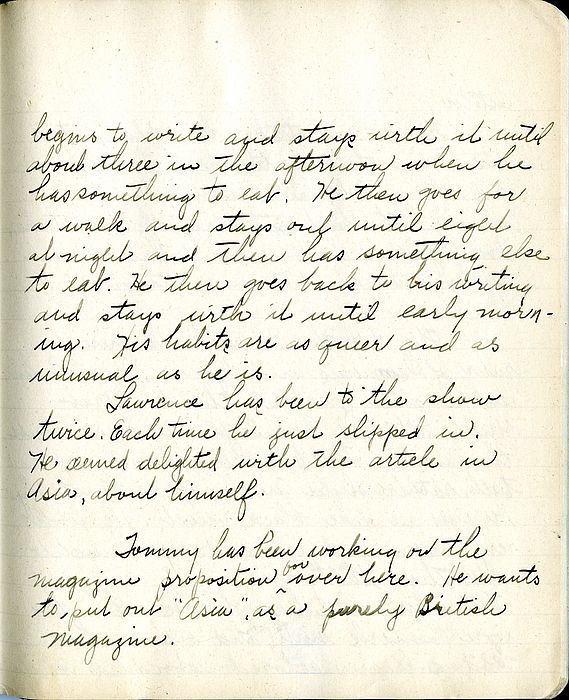 begins to write and stays with it until
about three in the afternoon when he
has something to eat. He then goes for
a walk and stays out until eight
at night and then has something else
to eat. He then goes back to his writing
and stays with it until early morn-
ing. His habits are as queer and as
unusual as he is.
Lawrence has been to the show
twice. Each time he just slipped in.
He seemed delighted with the article in
Asia, about himself.
Tommy has been working on the
magazine proposition over here. He wants
to put out "Asia", as a purely British
magazine.